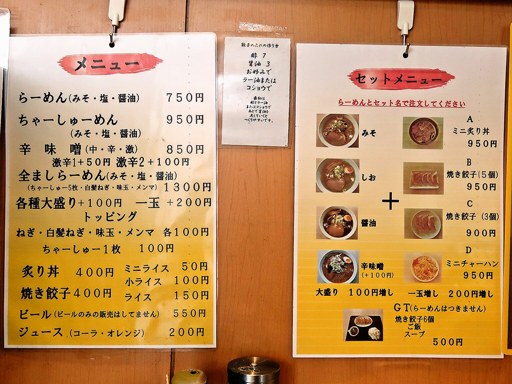 メニュー
らーめん(みそ・塩・醤油) 750円
ちゃーしゅーめん 950円
(みそ・塩・醤油)
辛味噌(中・辛・激) 850円
激辛1+50円 激辛2+100円
全ましらーめん(みそ・塩・醤油)
(ちゃーしゅー5枚・白髪ねぎ・味玉・メンマ) 1300円
各種大盛り+100円 一玉+200円
トッピング
ねぎ・白髪ねぎ・味玉・メンマ 各100円
ちゃーしゅー1枚 100円
炙り丼 400円
焼き餃子 400円
ミニライス 50円
小ライス 100円
ライス 150円
ビール(ビールのみの販売はしてません) 550円
ジュース(コーラ・オレンジ) 200円
酢 7
醤油 3
お好みで
ラー油または
コショウで
セットメニュー
らーめんとセット名で注文してください
みそ
しお
醤油
辛味噌
(+100円)
+
A
ミニ炙り丼
950円
B
焼き餃子(5個)
950円
C
焼き餃子(3個)
900円
D
ミニチャーハン
950円
大盛り 100円増し 一玉増し 200円増し
GT(らーめんはつきません)
焼き餃子6個
ご飯
スープ
500円